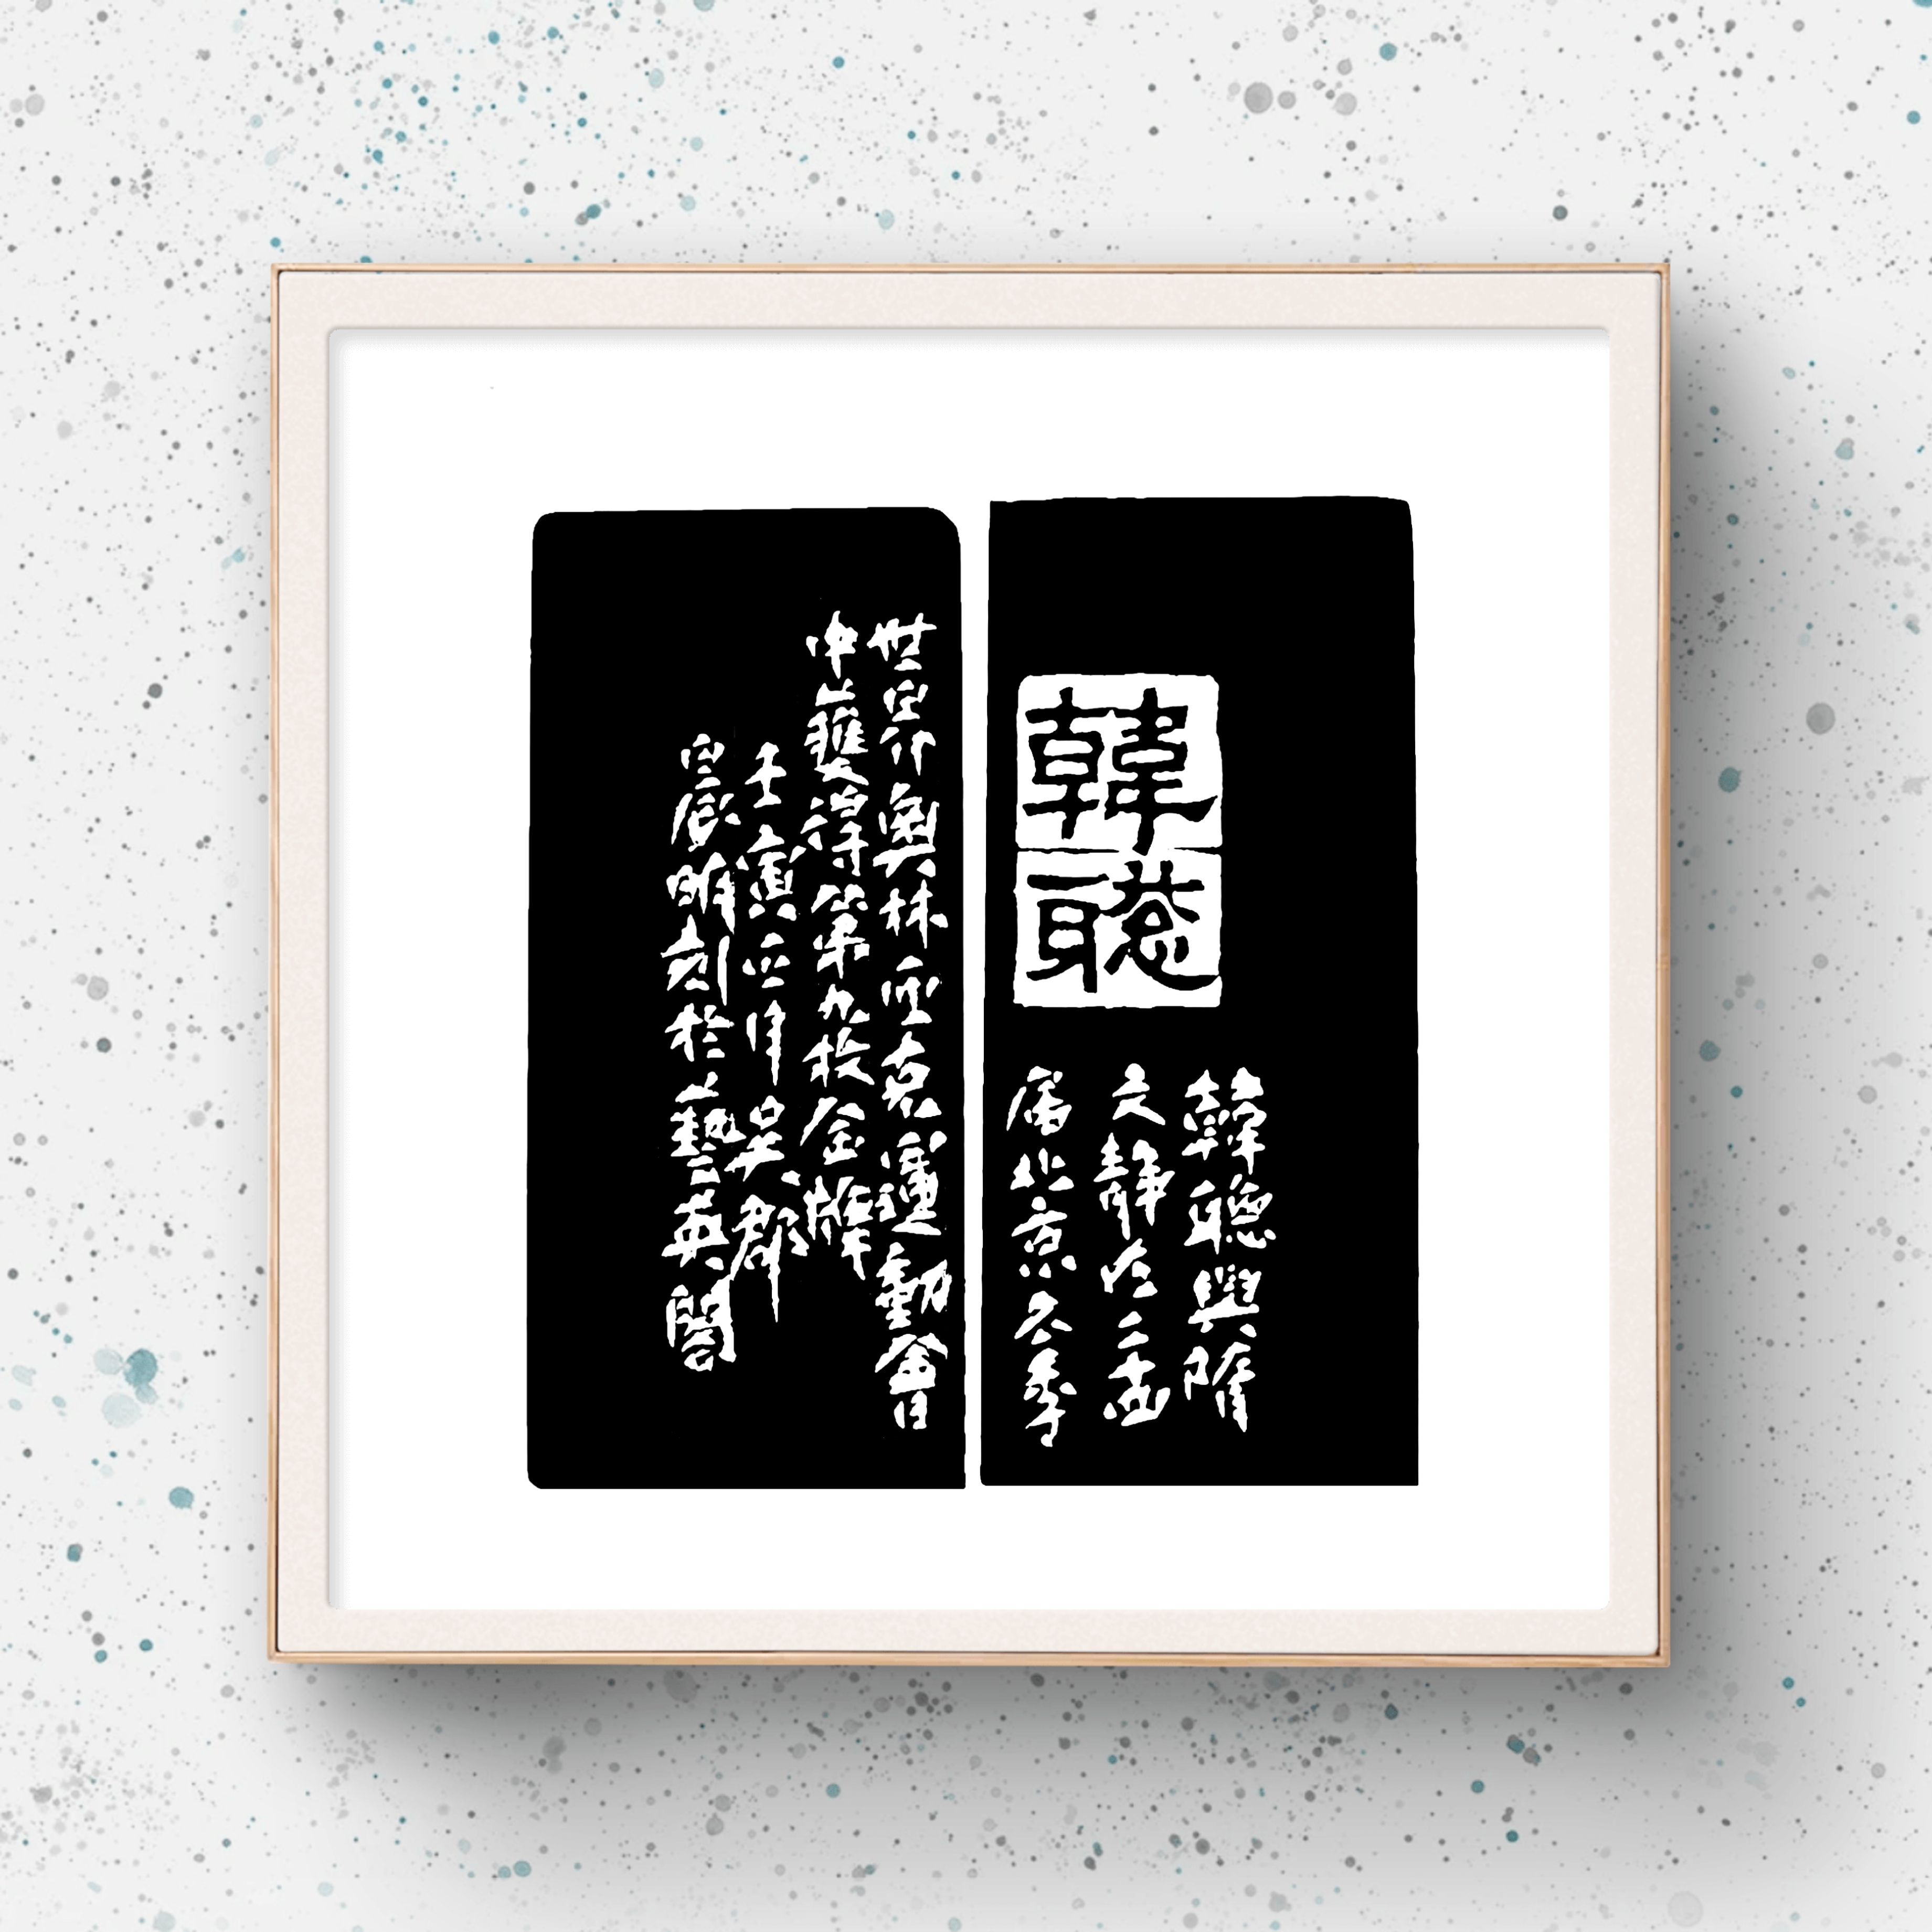 韓聰
韓聰與隋
文靜在二
屆北京冬季
世界奧林匹克運動會
中獲得第九枚金牌
壬寅正月吳郡
晨明刻於藝英閣